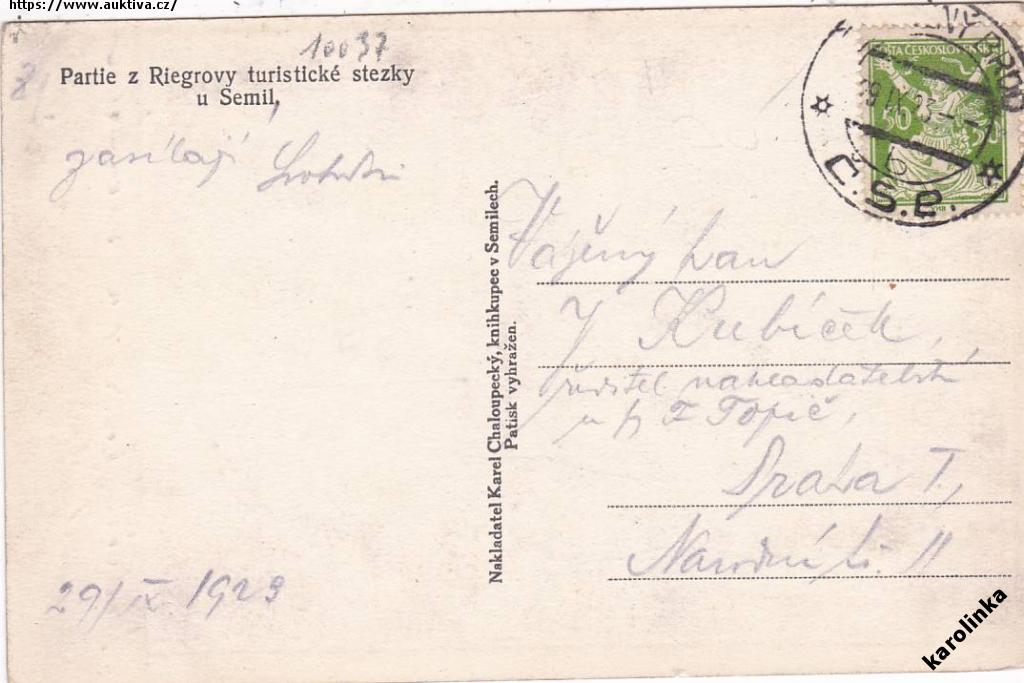 https://www.auktiva.cz/
10037
Partie z Riegrovy turistické stezky
u Semil.
zasílají
Nakladatel Karel Chaloupecký, knihkupec v Semilech.
Patisk vyhražen.
POŠTA ČESKOSLOVENSKÁ
50
BROD
b
Č.S.P.
Vážený pan
J Kubíček,
ředitel nakladatelství
u p. F Topič,
Praha I.,
Národní tř. 11
29/IX 1923
karolinka